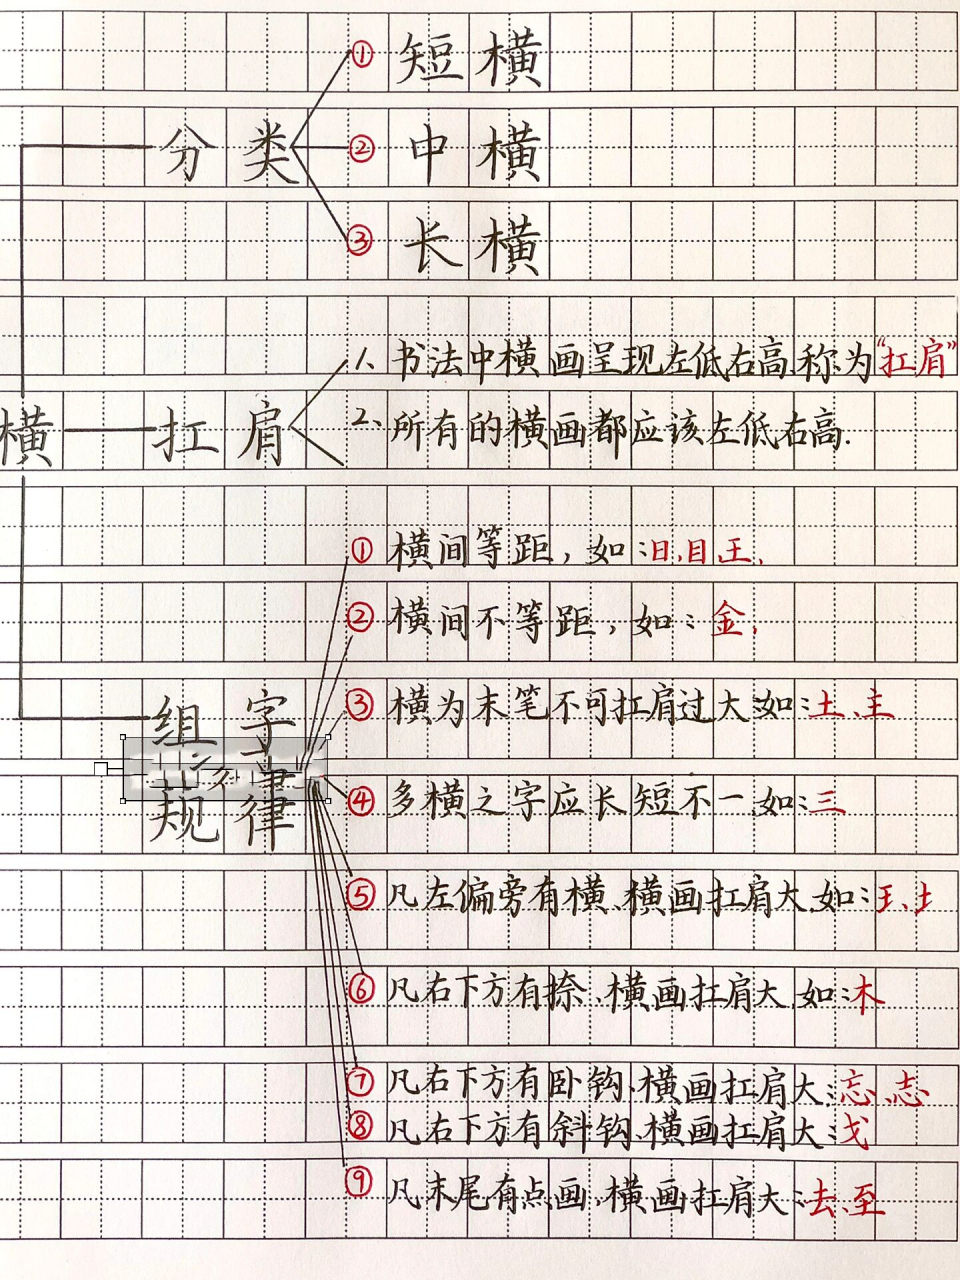 ① 短横
分类
② 中横
③ 长横
1、书法中横画呈现左低右高、称为“扛肩”
横
扛肩
2、所有的横画都应该左低右高.
① 横间等距，如:日、目、王、
② 横间不等距，如:金、
组字
③ 横为末笔不可扛肩过大:如:土、主
规律
④ 多横之字应长短不一、如:三
⑤ 凡左偏旁有横、横画扛肩大、如:王、土
⑥ 凡右下方有捺、横画扛肩大、如:木
⑦ 凡右下方有卧钩、横画扛肩大:忘、志
⑧ 凡右下方有斜钩、横画扛肩大:戈
⑨ 凡末尾有点画、横画扛肩大:去、至